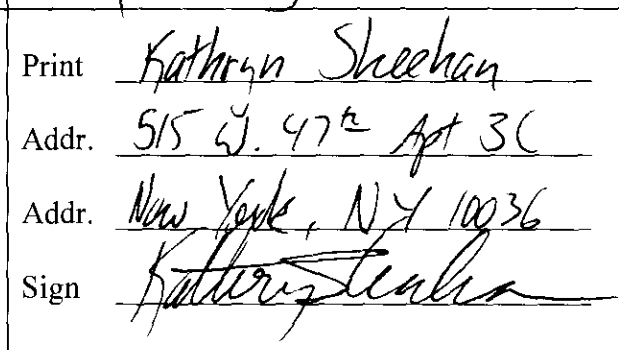 Print Kathryn Sheehan
Addr. 515 W. 47th Apt 3C
Addr. New York, NY 10036
Sign Kathryn Sheehan